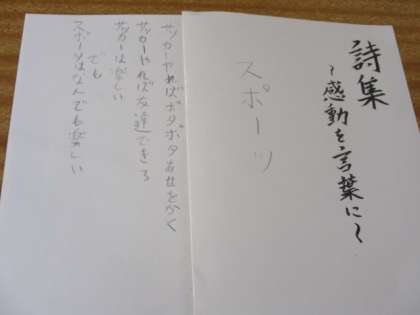 詩集
~感動を言葉に~
スポーツ
サッカーやればボタボタあせをかく
サッカーやれば友達できる
サッカーは楽しい
でも
スポーツはなんでも楽しい